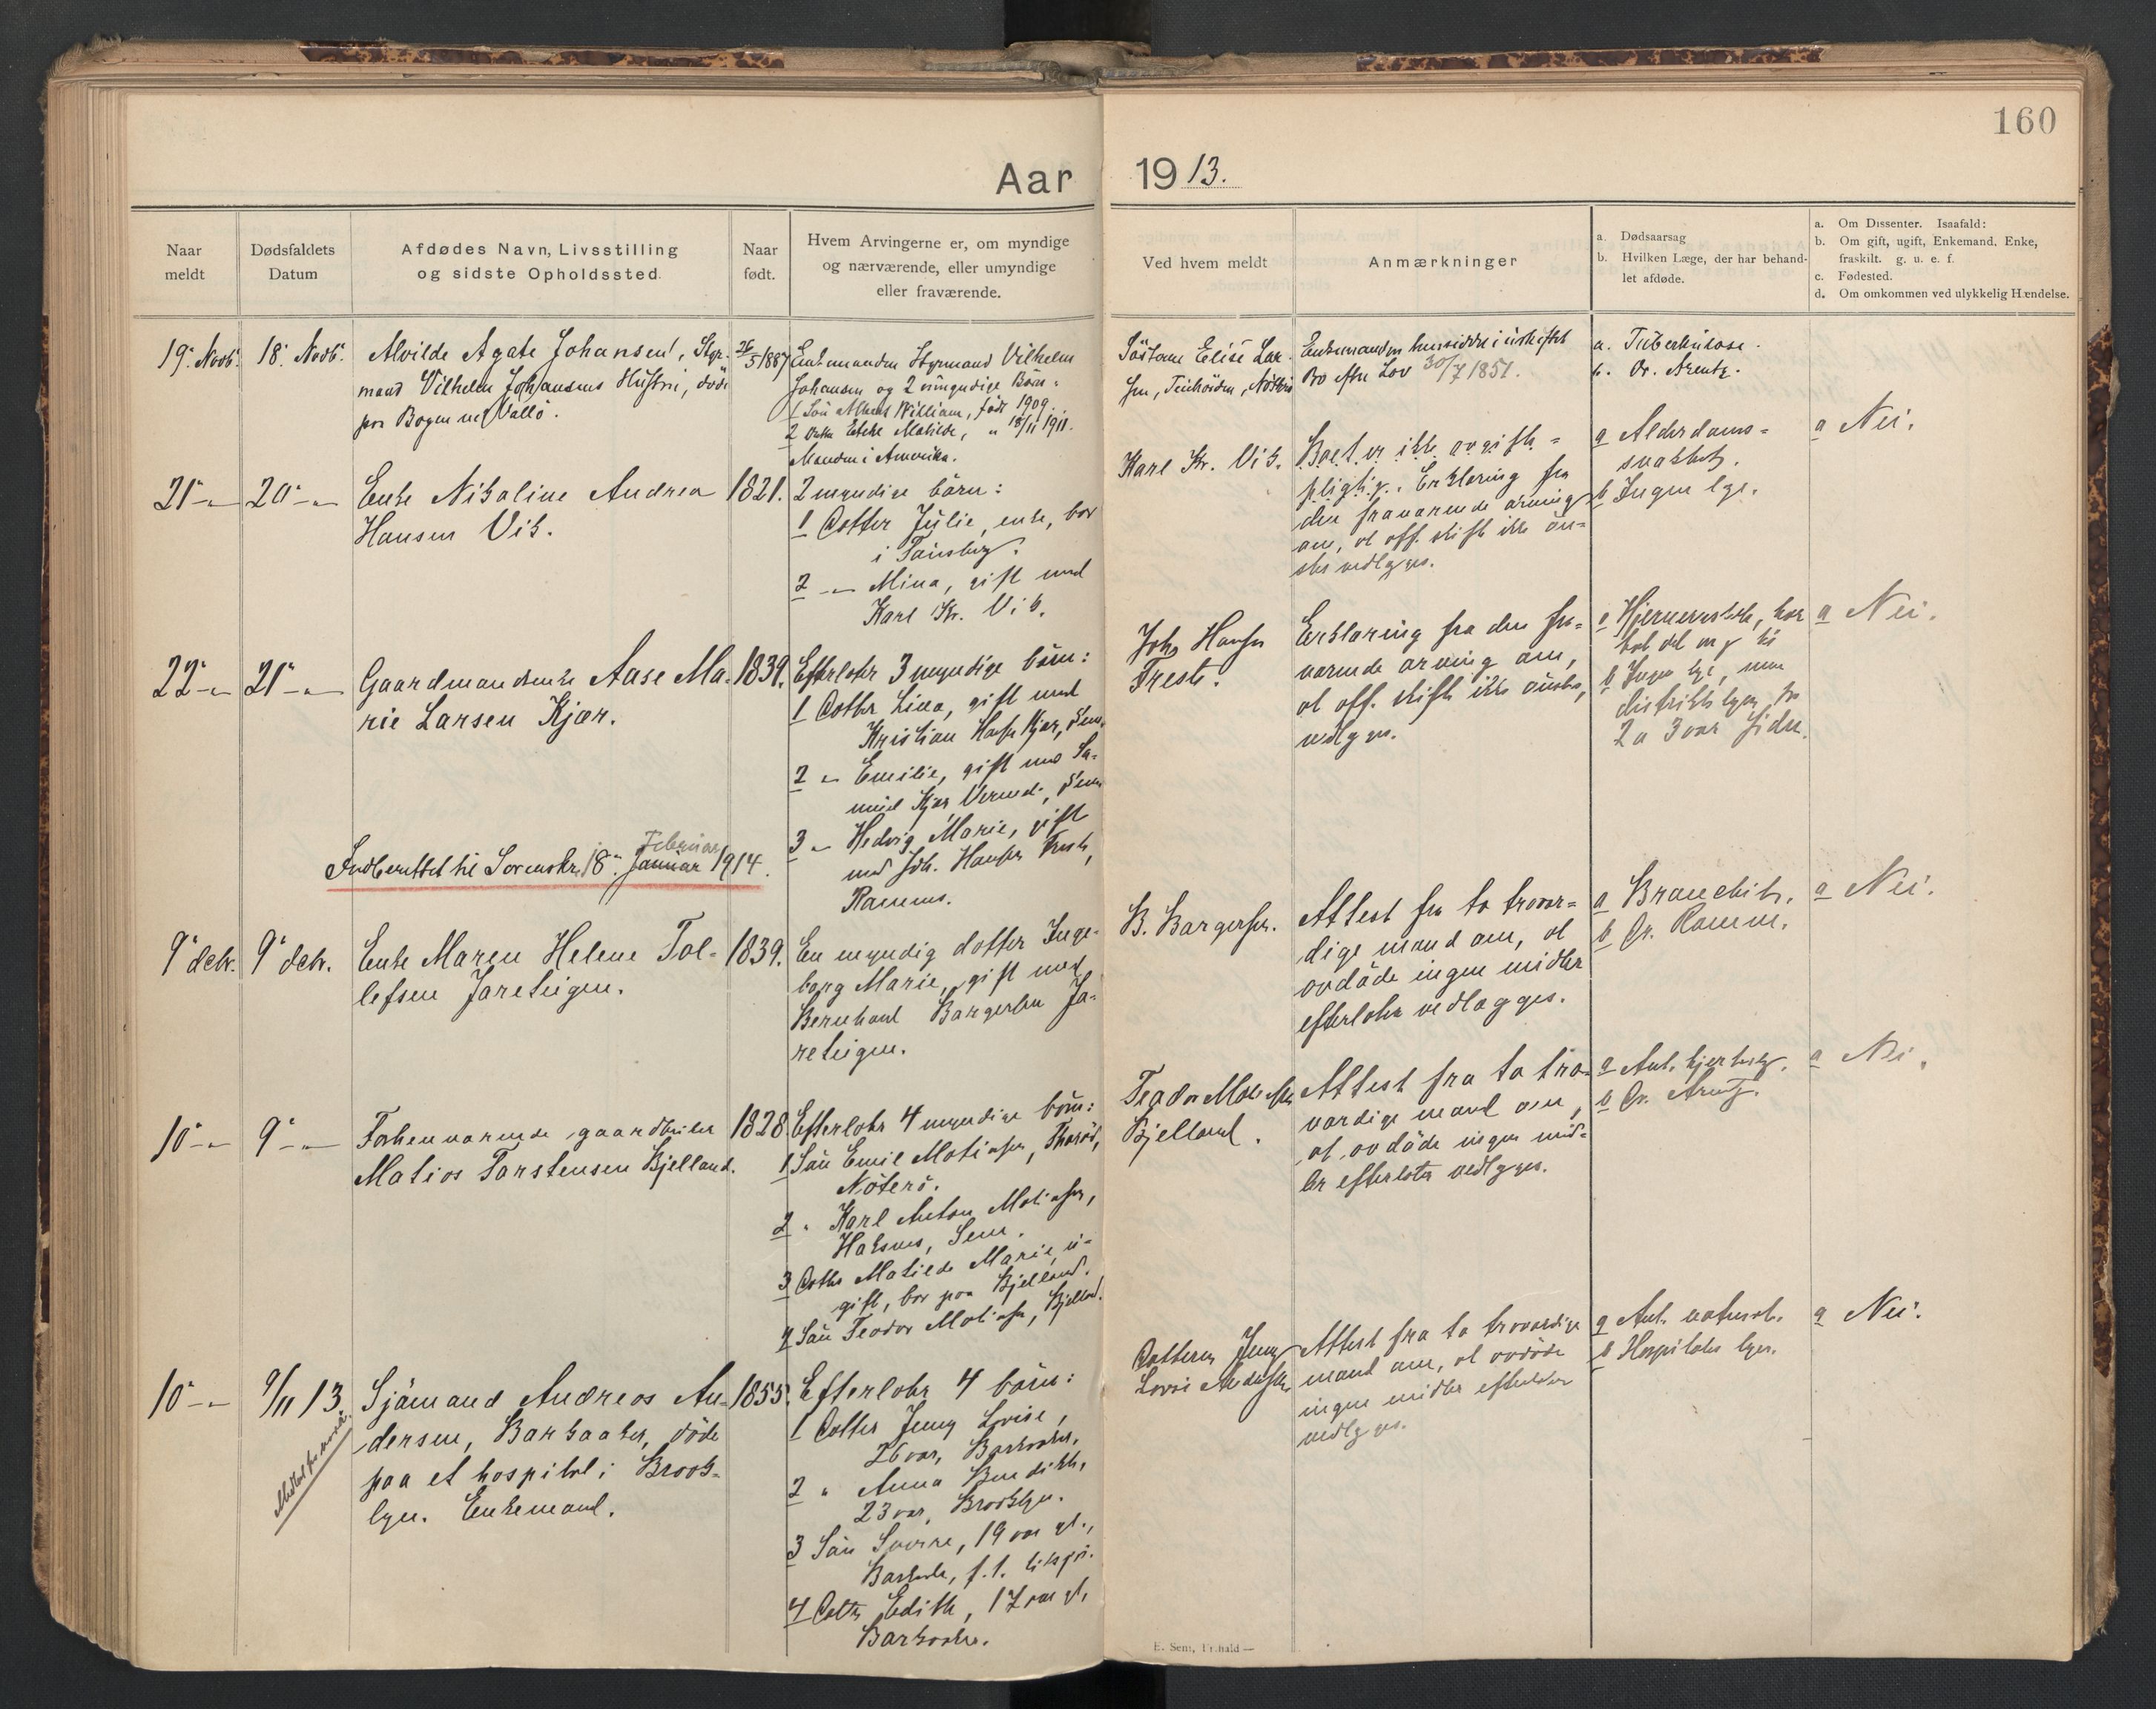 160
Aar 1913.
Naar meldt
Dødsfaldets Datum
Afdødes Navn, Livsstilling og sidste Opholdssted.
Naar født.
Hvem Arvingerne er, om myndige og nærværende, eller umyndige eller fraværende.
Ved hvem meldt
Anmærkninger
a. Dødsaarsag
b. Hvilken Læge, der har behandlet afdøde.
a. Om Dissenter. Isaafald:
b. Om gift, ugift, Enkemand, Enke, fraskilt. g. u. e. f.
c. Fødested.
d. Om omkommen ved ulykkelig Hændelse.
19' Novb. 18' Novb.
Alvilde Agate Johansen, Styr-
mand Vilhelm Johansens Hustru, døde
paa Bogen ved Vallö.
26/5 1887
Enkemanden Styrmand Vilhelm
Johansen og 2 umyndige Børn:
1 Sön Albert William, født 1909.
2 Matilde, " 18/11 1911.
Manden i Amerika.
Elise Lar-
sen,
Enkemanden hensidder i uskiftet
Bo efter Lov 30/7 1851.
a. Tüberkülose.
b. Dr. Arentz.
21'-"- 20-"-
Enke Nikoline Andrea
Hansen Vik.
1821.
2 myndige börn:
1 Datter Julie, enke, bor
i Tönsberg.
2 -"- Mina, gift med
Karl Kr. Vik.
Karl Kr. Vik.
Boet er ikke avgifts=
pligtig. Erklæring fra
den fraværende arving
om, at off. skifte ikke ön-
skes vedlægges.
a Alderdoms=
svakhet.
b Ingen læge.
a Nei.
22'-"- 21'-"-
Gaardmandsenke Aase Ma-
rie Larsen Kjær.
1839.
Efterlater 3 myndige börn:
1 Datter Lina, gift med
Kristian Hansen Kjær, Sem.
2 -"- Emilie, gift med
3 -"- Hedvig Marie, gift
med Joh. Hansen
Ramnes.
Johs Hansen
Freste.
Erklæring fra den fra-
værende arving om,
at off. skifte ikke önskes,
vedlægges.
b Ingen læge, men
distriktslægen for
2 a 3 aar siden.
a Nei.
Indberettet til Sorenskr. 8' Januar 1914.
Februar
9' decbr. 9' decbr.
Enke Maren Helene Tol-
lefsen Jareteigen.
1839.
En myndig datter Inge-
borg Marie, gift med
Bernhard Børgersen Ja-
reteigen.
B. Børgersen.
Attest fra to trovær-
dige mænd om, at
avdöde ingen midler
efterlater vedlægges.
a Bronchit.
b Dr. Ramm.
a Nei.
10'-"- 9'-"-
Forhenværende gaardbruker
Matias Torstensen Bjelland.
1828.
Efterlater 4 myndige börn:
1 Sön Emil Matiasen,
Nöterö.
2 " Karl Anton Matiasen,
Sem.
3 Datter Matilde Marie, u-
gift, bor paa Bjelland.
4 Sön Teodor Matiasen, Bjelland.
Teodor Matiasen
Bjelland.
Attest fra to tro-
værdige mænd om,
at avdöde ingen mid-
ler efterlater vedlægges.
b Dr. Arentz.
a Nei.
10'-"- 9/11 13.
Sjömand Andreas An-
dersen, Barkaaker, döde
paa et hospital i Brook-
lyn. Enkemand.
1855.
Efterlater 4 börn:
1 Datter Jenny Lovise,
26 aar, Barkaaker.
2 " Anna Benedikte,
23 aar, Brooklyn.
3 Sön Sverre, 19 aar gl.,
Barkaaker, f. t. tilsjös.
4 Datter Edith, 17 aar gl.
Barkaaker.
Datteren Jenny
Lovise Andersen
Attest fra to troværdige
mænd om, at avdöde
ingen midler efterlater
vedlægges.
b Hospitalets læge.
a Nei.
E. Sem, Fr.hald —